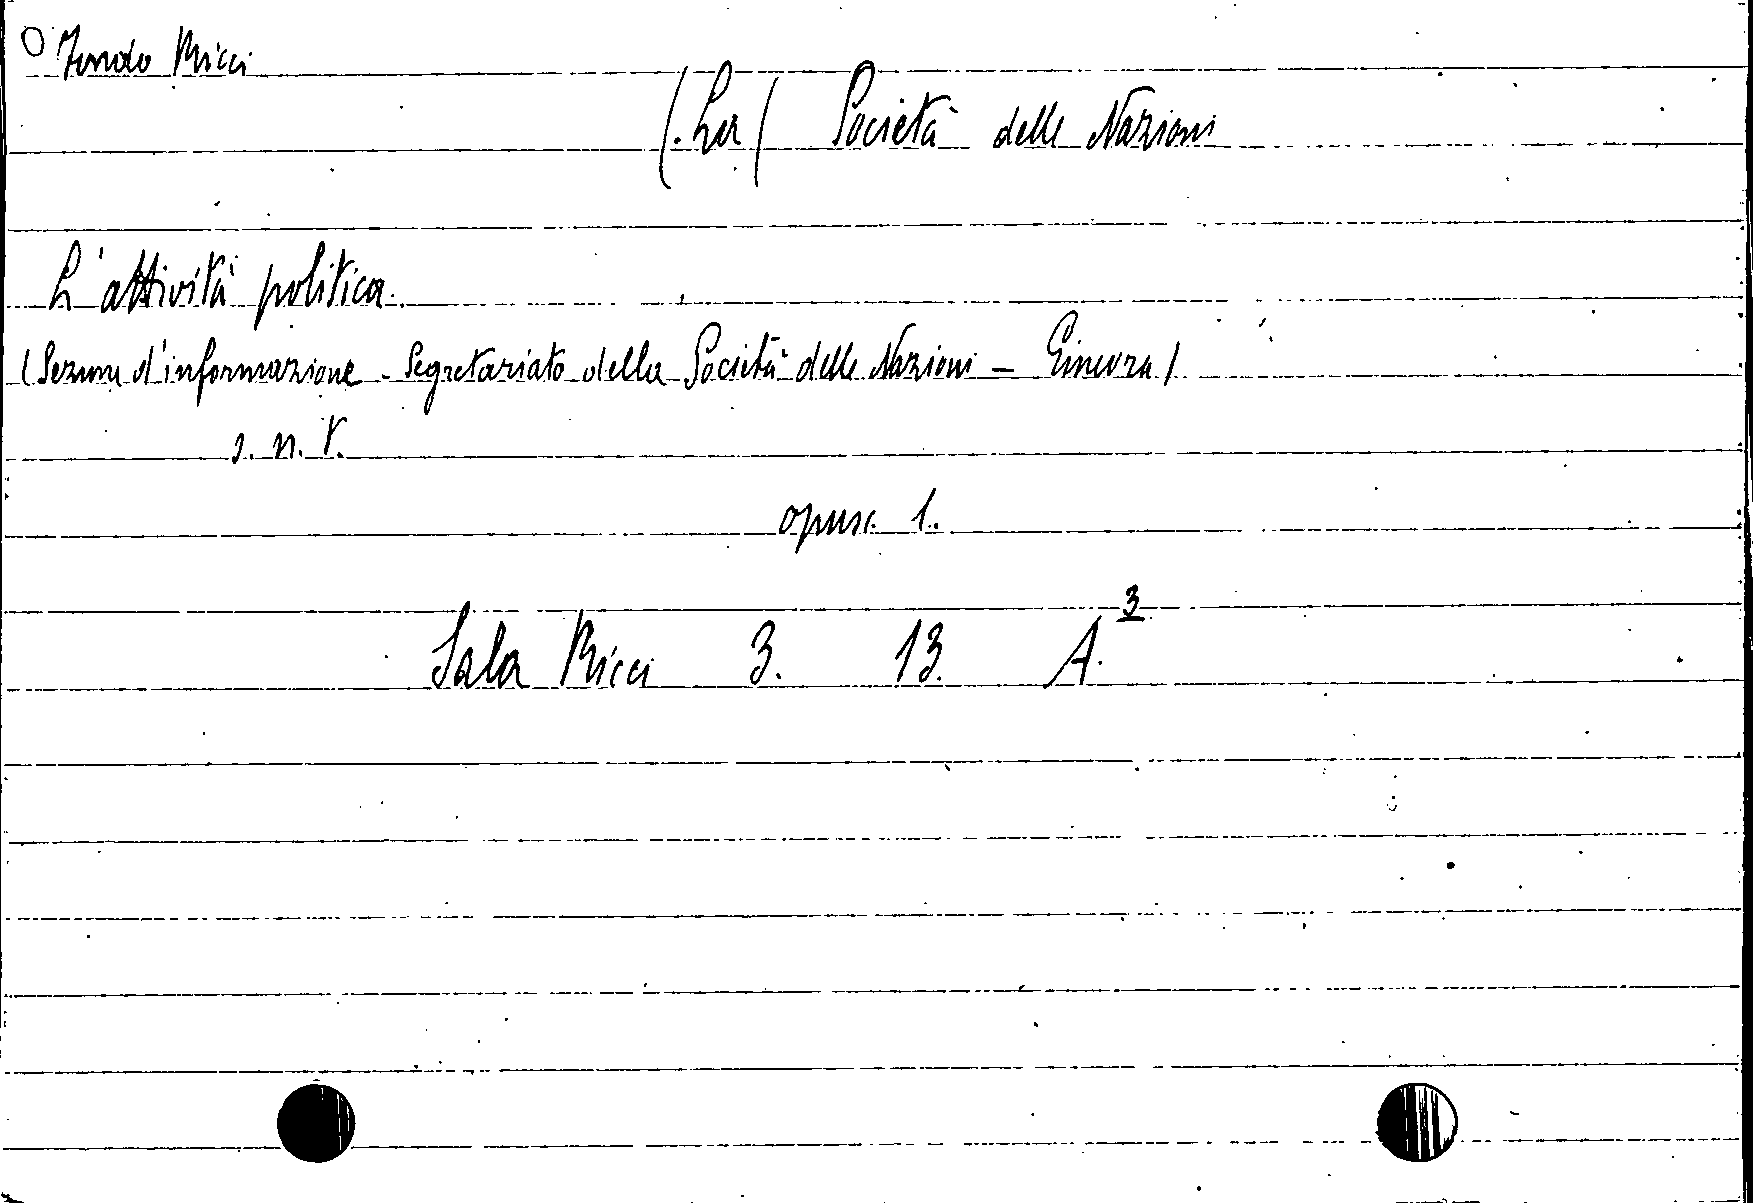 Fondo Ricci
(La) Società delle Nazioni
L'attività politica.
(Sezione d'informazione - Segretariato della Società delle Nazioni - Ginevra)
s. n. t.
opusc. 1.
Sala Ricci 3. 13. A.3